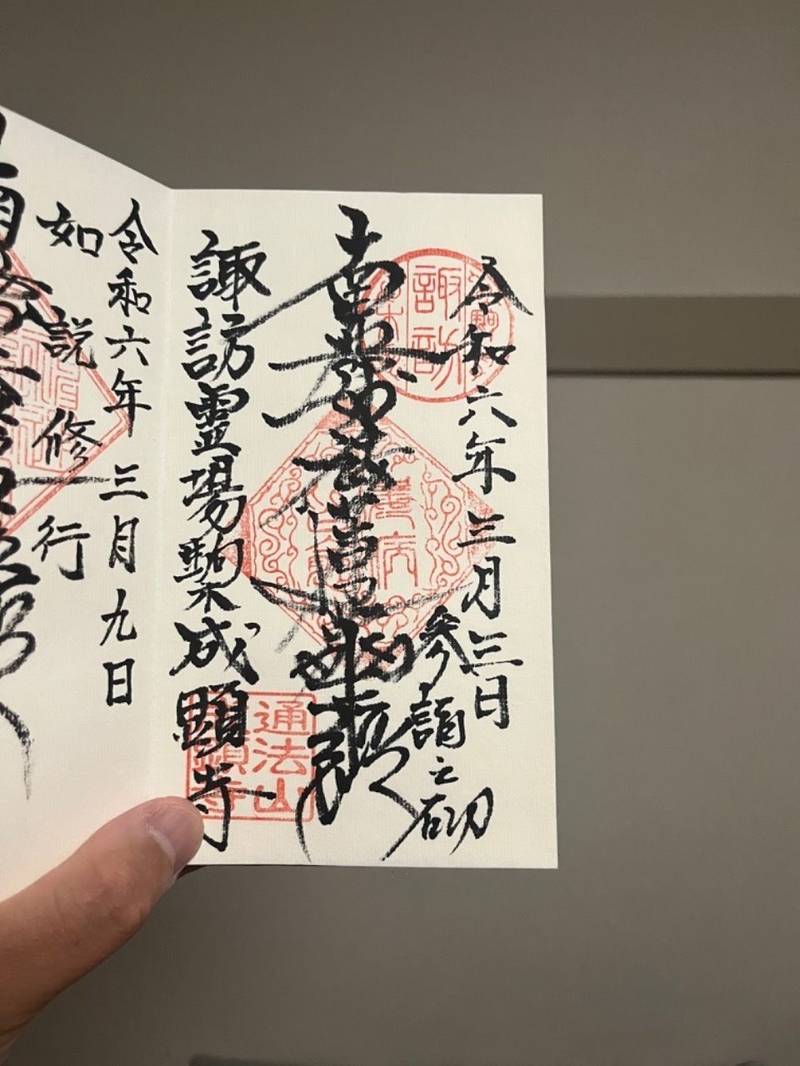 令和六年三月三日
参詣之砌
南無妙法蓮華経
諏訪
諏訪霊場駒木成顕寺
通法山
成顕寺
令和六年三月九日
如説修行